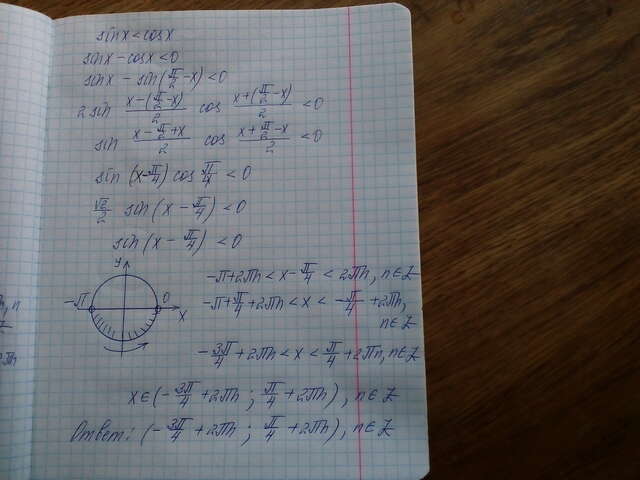 sinx < cosx
sinx - cosx < 0
sinx - sin(π/2 - x) < 0
2 sin (x - (π/2 - x))/2 cos (x + (π/2 - x))/2 < 0
sin (x - π/2 + x)/2 cos (x + π/2 - x)/2 < 0
sin (x - π/4) cos π/4 < 0
√2/2 sin (x - π/4) < 0
sin (x - π/4) < 0
y
-π 0
x
-π + 2πn < x - π/4 < 2πn, n∈Z
-π + π/4 + 2πn < x < -π/4 + 2πn,
n∈Z
-3π/4 + 2πn < x < π/4 + 2πn, n∈Z
x∈(-3π/4 + 2πn ; π/4 + 2πn), n∈Z
Ответ: (-3π/4 + 2πn ; π/4 + 2πn), n∈Z